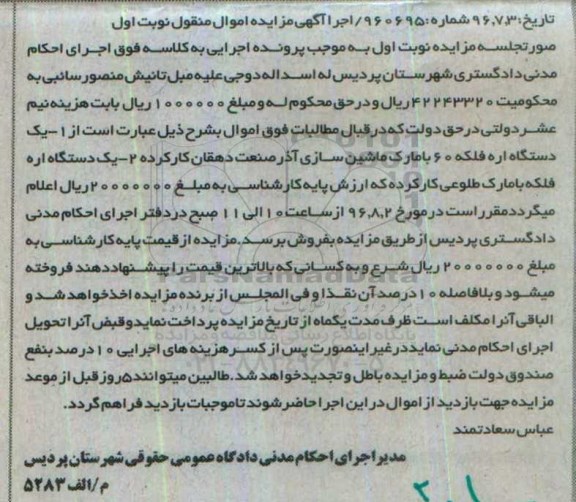 تاریخ:۹۶,۷,۳ شماره:۹۶۰۶۹۵/اجرا آگهی مزایده اموال منقول نوبت اول
صورتجلسه مزایده نوبت اول به موجب پرونده اجرایی به کلاسه فوق اجرای احکام
مدنی دادگستری شهرستان پردیس له اسداله دوجی علیه مبل تانیش منصور سانی به
محکومیت ۴۲۲۴۳۳۲۰ ریال و در حق محکوم له و مبلغ ۱۰۰۰۰۰۰ ریال بابت هزینه نیم
عشر دولتی در حق دولت که در قبال مطالبات فوق اموال بشرح ذیل عبارت است از ۱-یک
دستگاه اره فلکه ۶۰ با مارک ماشین سازی آذر صنعت دهقان کارکرده ۲-یک دستگاه اره
فلکه با مارک طلوعی کارکرده که ارزش پایه کارشناسی به مبلغ ۲۰۰۰۰۰۰۰ ریال اعلام
میگردد مقرر است در مورخ ۹۶,۸,۲ از ساعت ۱۰ الی ۱۱ صبح در دفتر اجرای احکام مدنی
دادگستری پردیس از طریق مزایده بفروش برسد.مزایده از قیمت پایه کارشناسی به
مبلغ ۲۰۰۰۰۰۰۰ ریال شرع و به کسانی که بالاترین قیمت را پیشنهاد دهند فروخته
میشود و بلافاصله ۱۰ درصد آن نقدا و فی المجلس از برنده مزایده اخذ خواهد شد و
الباقی آنرا مکلف است ظرف مدت یکماه از تاریخ مزایده پرداخت نماید و قبض آنرا تحویل
اجرای احکام مدنی نماید در غیر اینصورت پس از کسر هزینه های اجرایی ۱۰ درصد بنفع
صندوق دولت ضبط و مزایده باطل و تجدید خواهد شد.طالبین میتوانند ۵ روز قبل از موعد
مزایده جهت بازدید از اموال در این اجرا حاضر شوند تا موجبات بازدید فراهم گردد.
عباس سعادتمند
مدیر اجرای احکام مدنی دادگاه عمومی حقوقی شهرستان پردیس
م/الف ۵۲۸۳
ParsNamadData